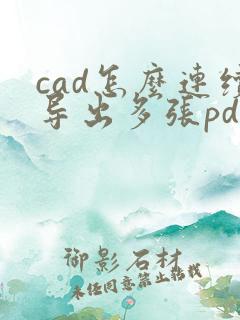 cad怎麼連續
导出多張pd
御影石材
未经同意禁止转载